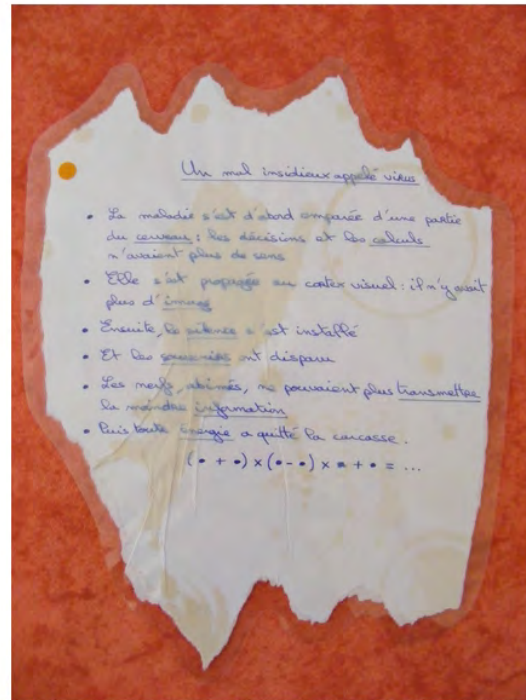 Un mal insidieux appelé virus
• La maladie s'est d'abord emparée d'une partie
du cerveau : les décisions et les calculs
n'avaient plus de sens
• Elle s'est propagée au cortex visuel : il n'y avait
plus d'image
• Ensuite, le silence s'est installé
• Et les souvenirs ont disparu
• Les nerfs, abimés, ne pouvaient plus transmettre
la moindre information
• Puis toute énergie a quitté la carcasse.
(• + •) x (• - •) x • + • = ...